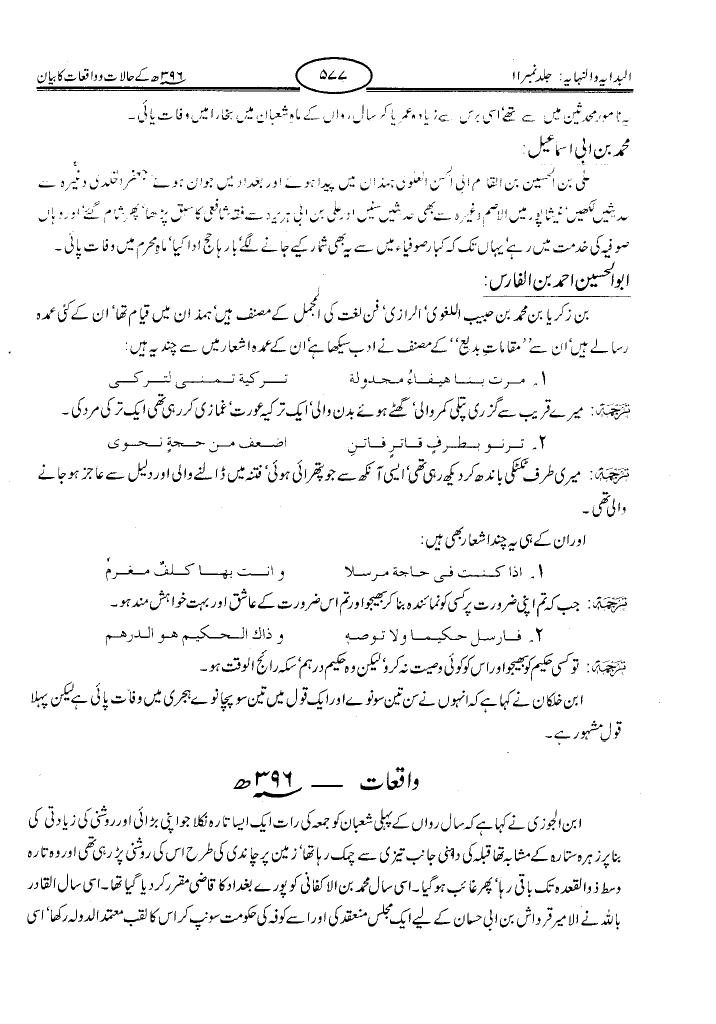 البدایہ والنہایہ: جلد نمبر ۱۱ ۵۷۷ ۳۹۶ھ کے حالات و واقعات کا بیان
یہ نامور محدثین میں سے تھے‘ اسی برس سے زیادہ عمر پا کر سال رواں کے ماہ شعبان میں بخارا میں وفات پائی۔
محمد بن ابی اسماعیل:
علی بن الحسین بن القاسم ابی الحسن العلوی ہمذان میں پیدا ہوئے اور بغداد میں جوان ہوئے‘ جعفر الخلدی وغیرہ سے
حدیثیں لکھیں‘ نیشاپور میں الاصم وغیرہ سے بھی حدیثیں سنیں اور علی بن ابی ہریرہ سے فقہ شافعی کا سبق پڑھا‘ پھر شام گئے‘ اور وہاں
صوفیہ کی خدمت میں رہے‘ یہاں تک کہ کبار صوفیاء میں سے یہ بھی شمار کیے جانے لگے‘ بارہا حج ادا کیا‘ ماہ محرم میں وفات پائی۔
ابوالحسین احمد بن الفارس:
بن زکریا بن محمد بن حبیب اللغوی‘ الرازی‘ فن لغت کی المجمل کے مصنف ہیں‘ ہمذان میں قیام تھا‘ ان کے کئی عمدہ
رسالے ہیں‘ ان سے ’’مقامات بدیع‘‘ کے مصنف نے ادب سیکھا ہے‘ ان کے عمدہ اشعار میں سے چند یہ ہیں:
۱۔ مرت بنا هيفاءُ مجدولة تركية تمنى لتركى
ترجمہ: میرے قریب سے گزری پتلی کمر والی‘ گھٹے ہوئے بدن والی‘ ایک ترکیہ عورت‘ غمازی کر رہی تھی ایک ترکی مرد کی۔
۲۔ ترنو بطرفٍ فاترٍ فاتنٍ اضعف من حجةٍ نحوى
ترجمہ: میری طرف ٹکٹکی باندھ کر دیکھ رہی تھی‘ ایسی آنکھ سے جو پھرائی ہوئی‘ فتنہ میں ڈالنے والی اور دلیل سے عاجز ہو جانے
والی تھی۔
اور ان کے ہی یہ چند اشعار بھی ہیں:
۱۔ اذا كنت فى حاجة مرسلا و انت بها كلفٌ مغرمٌ
ترجمہ: جب کہ تم اپنی ضرورت پر کسی کو نمائندہ بنا کر بھیجو اور تم اس ضرورت کے عاشق اور بہت خواہش مند ہو۔
۲۔ فارسل حكيما ولا توصهٖ و ذاك الحكيم هو الدرهم
ترجمہ: تو کسی حکیم کو بھیجو اور اس کو کوئی وصیت نہ کرو‘ لیکن وہ حکیم درہم‘ سکہ رائج الوقت ہو۔
ابن خلکان نے کہا ہے کہ انہوں نے سن تین سو نوے اور ایک قول میں تین سو پچانوے ہجری میں وفات پائی ہے لیکن پہلا
قول مشہور ہے۔
واقعات — ۳۹۶ھ
ابن الجوزی نے کہا ہے کہ سال رواں کے پہلی شعبان کو جمعہ کی رات ایک ایسا تارہ نکلا جو اپنی بڑائی اور روشنی کی زیادتی کی
بنا پر زہرہ ستارہ کے مشابہ تھا قبلہ کی داہنی جانب تیزی سے چمک رہا تھا‘ زمین پر چاندی کی طرح اس کی روشنی پڑ رہی تھی اور وہ تارہ
وسط ذوالقعدہ تک باقی رہا‘ پھر غائب ہو گیا۔ اسی سال محمد بن الاکفانی کو پورے بغداد کا قاضی مقرر کر دیا گیا تھا۔ اسی سال القادر
باللہ نے الامیر قرداش بن ابی حسان کے لیے ایک مجلس منعقد کی اور اسے کوفہ کی حکومت سونپ کر اس کا لقب معتمد الدولہ رکھا‘ اسی